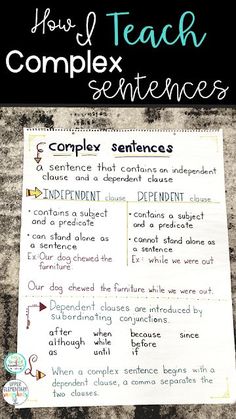 How I Teach
Complex
sentences
complex sentences
a sentence that contains an independent
clause and a dependent clause
INDEPENDENT clause
• contains a subject
and a predicate
• can stand alone as
a sentence
Ex: Our dog chewed the
furniture.
DEPENDENT clause
• contains a subject
and a predicate
• cannot stand alone
as a sentence
Ex: while we were out.
Our dog chewed the furniture while we were out.
Dependent clauses are introduced by
subordinating conjunctions.
after when because since
although while before
as until if
When a complex sentence begins with a
dependent clause, a comma separates the
two clauses.
UPPER
ELEMENTARY